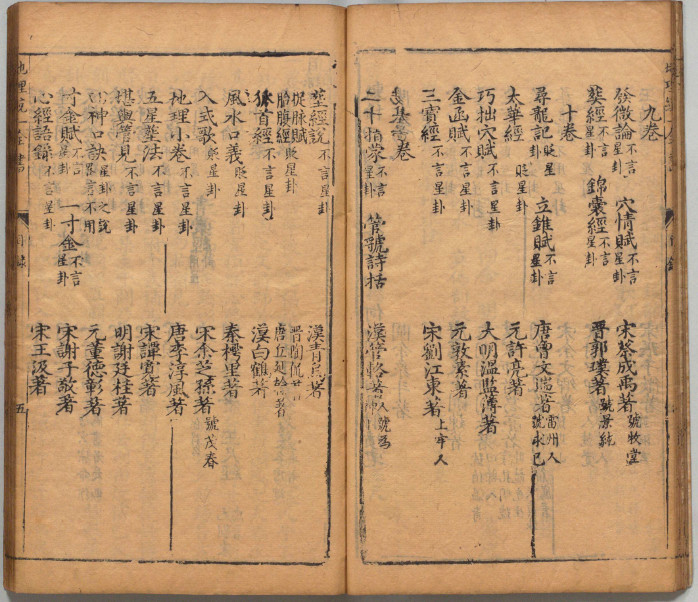 九卷
發微論 不言星卦 穴情賦 不言星卦 宋蔡成禹著 號牧堂
葬經 不言星卦 錦囊經 不言星卦 晉郭璞著 號景純
十卷
尋龍記 貶星卦 立錐賦 不言星卦 唐曾文遄著 雷州人號永已
太華經 貶星卦 元許亮著
巧拙穴賦 不言星卦 大明溫監簿著
金函賦 不言星卦 元敦素著
三寶經 不言星卦 宋劉江東著 上牢人
卷
二十指蒙 不言星卦 管號詩括 漢管輅著 人號為
葬經說 不言星卦 漢青烏著
捉脉賦 貶星卦 晉陶侃著
胎腹經 貶星卦 唐丘延翰著
狐首經 不言星卦 漢白鶴著
風水口義 貶星卦 秦樗里著
入式歌 貶星卦 宋余芝孫著 號茂春
地理小卷 不言星卦 唐李淳風著
五星葬法 不言星卦 宋譚寬著
堪輿管見 不言星卦 明謝廷桂著
神口訣 星卦之說 不用 元董德彰著
寸金賦 不言星卦 一寸金 不言星卦 宋謝子敬著
心經語錄 不言星卦 宋王伋著
地理 全書
目錄
五